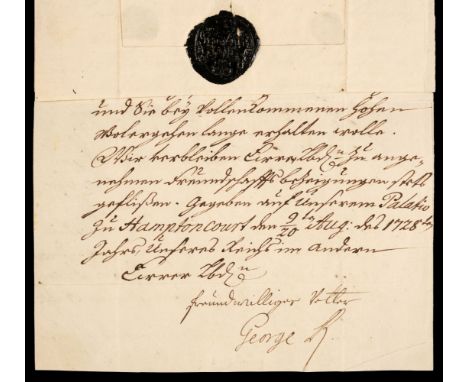 und Sie bey vollenkommenen Hohen
Wolergehen lange erhalten wolle.
Wir verbleiben Eurer Lbdn zu ange-
nehmen Freundschaffts bezeigungen stets
geflißen. Gegeben auf Unserem Palatio
zu Hamptoncourt den 9/20ten Aug: des 1728ten
Jahrs, Unseres Reichs im andern
Eurer Lbdn
freundwilliger Vetter
George R.